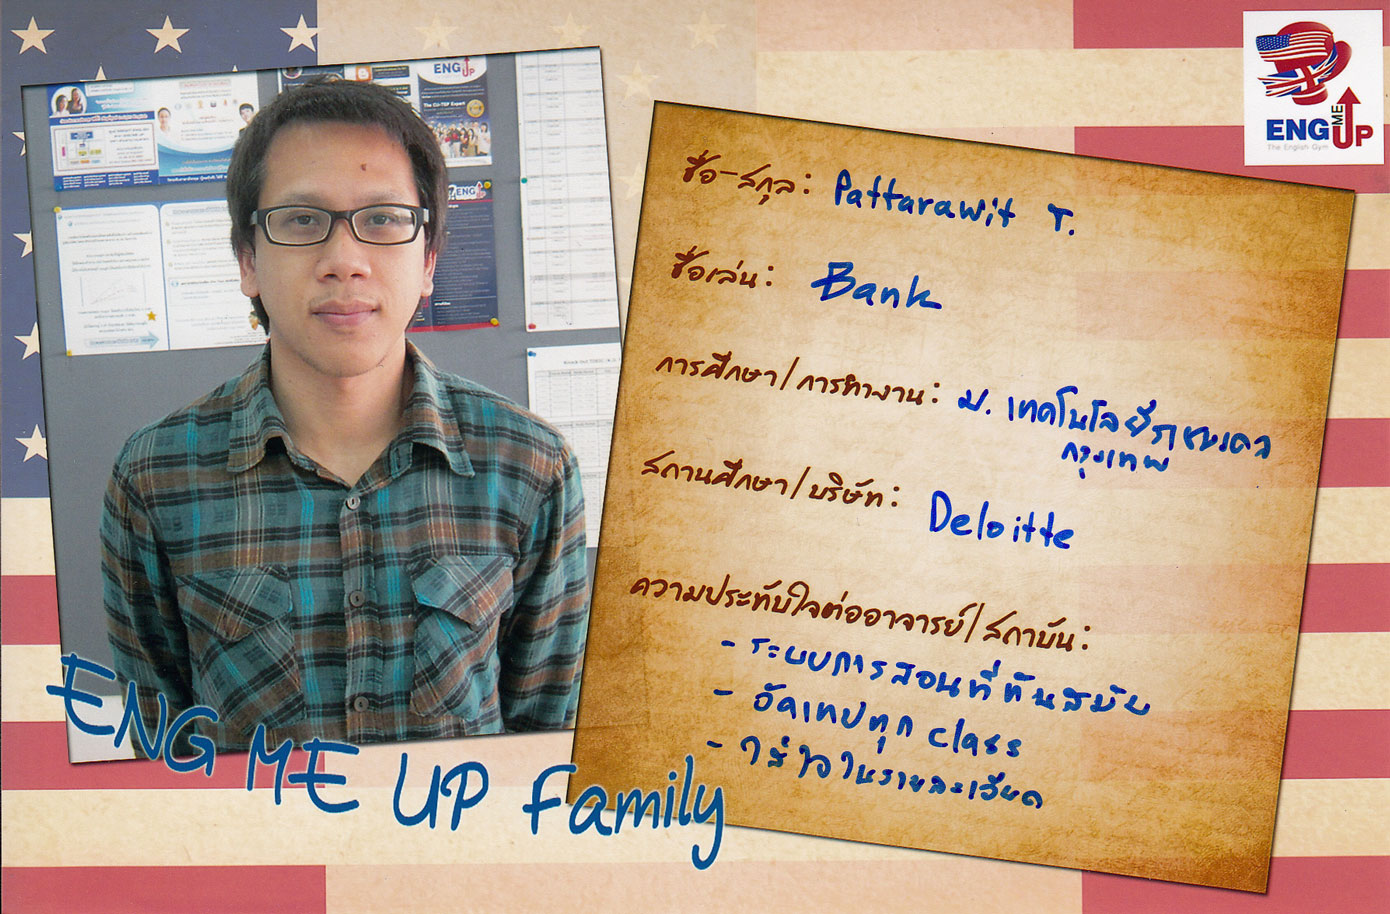 ENG
ME
UP
The English Gym
ENG UP
The CU-TEP Expert
ENG
ชื่อ-สกุล: Pattarawit T.
ชื่อเล่น: Bank
การศึกษา/การทำงาน: ม. เทคโนโลยีราชมงคล
กรุงเทพ
สถานศึกษา/บริษัท: Deloitte
ความประทับใจต่ออาจารย์/สถาบัน:
- ระบบการสอนที่ทันสมัย
- อัดเทปทุก class
- ใส่ใจในรายละเอียด
ENG ME UP Family